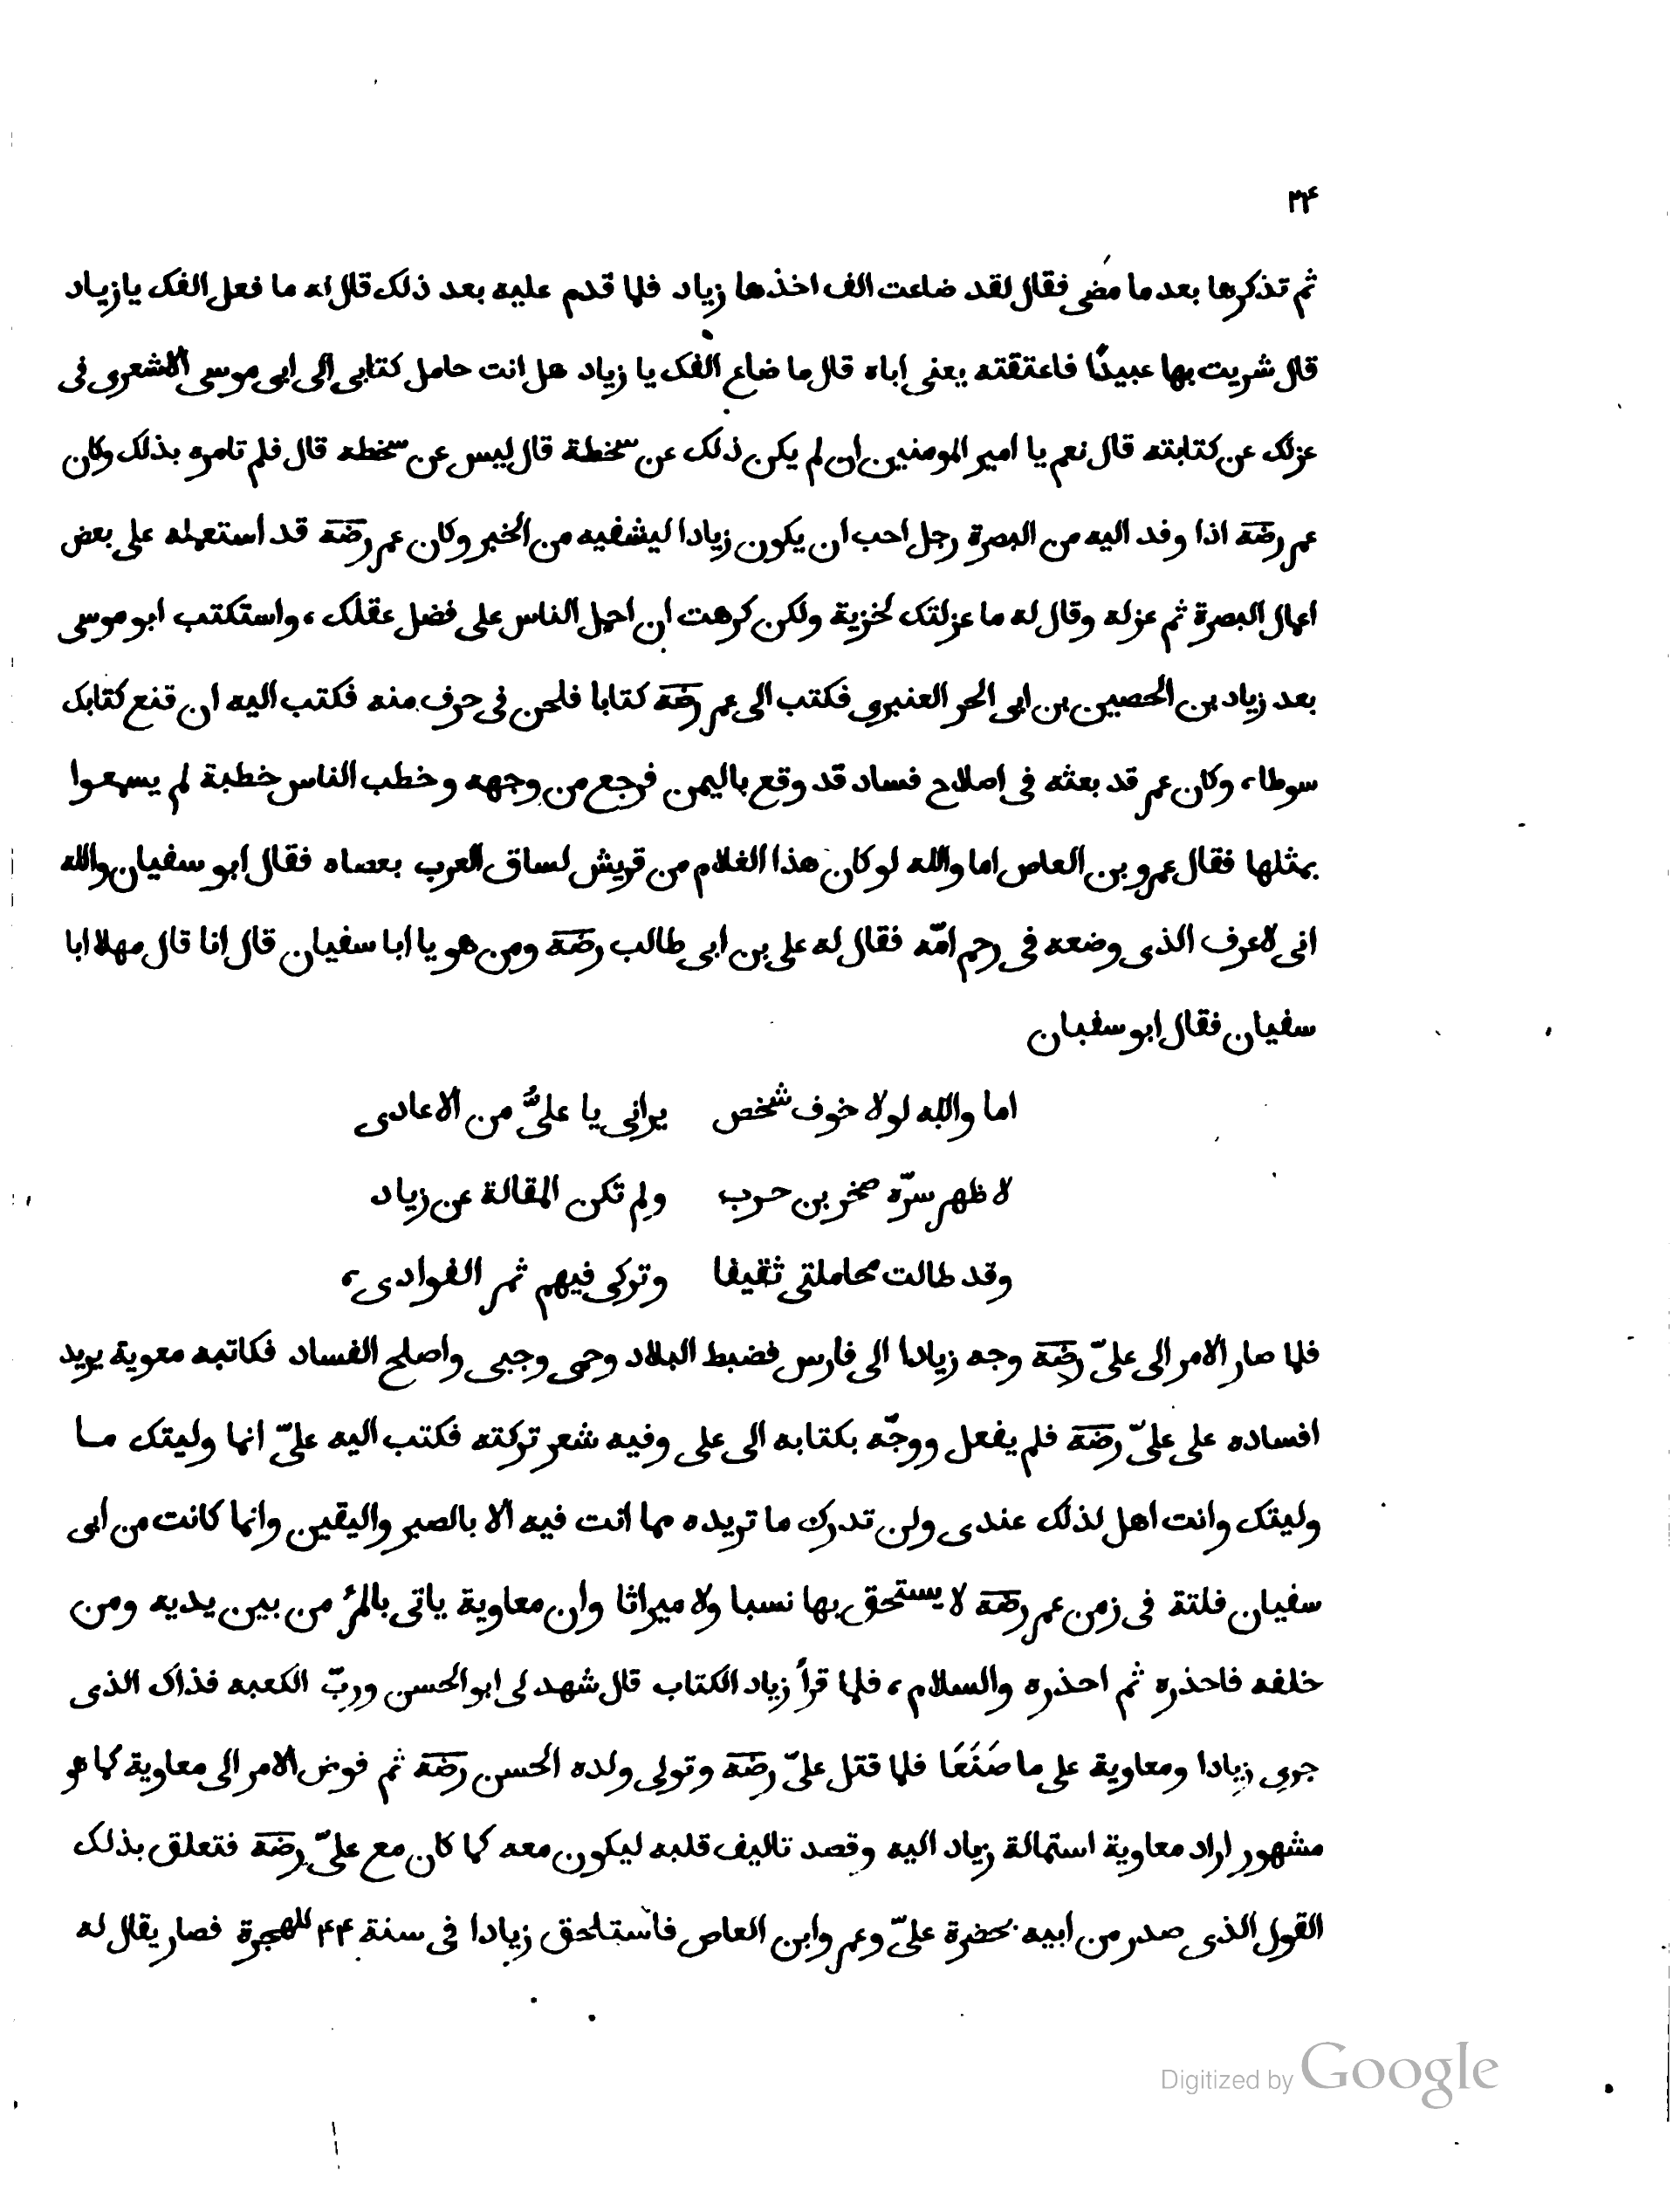 ٢۴
ثم تذكرها بعد ما مضى فقال لقد ضاعت الف اخذها زياد فلما قدم عليه بعد ذلك قال له ما فعل الفك يا زياد
قال شريت بها عبيدًا فاعتقته يعنى اباه قال ما ضاع الفك يا زياد هل انت حامل كتابى الى ابى موسى الاشعرى فى
عزلك عن كتابته قال نعم يا امير المومنين ان لم يكن ذلك عن سخطة قال ليس عن سخطه قال فلم تامره بذلك وكان
عمر رضه اذا وفد اليه من البصرة رجل احب ان يكون زيادا ليشفيه من الخبر وكان عمر رضه قد استعمله على بعض
اعمال البصرة ثم عزله وقال له ما عزلتك لخزية ولكن كرهت ان احمل الناس على فضل عقلك، واستكتب ابو موسى
بعد زياد بن الحصين بن ابى الحر العنبرى فكتب الى عمر رضه كتابا فلحن فى حرف منه فكتب اليه ان قنع كتابك
سوطا، وكان عمر قد بعثه فى اصلاح فساد قد وقع باليمن فرجع من وجهه وخطب الناس خطبة لم يسمعوا
بمثلها فقال عمرو بن العاص اما والله لو كان هذا الغلام من قريش لساق العرب بعصاه فقال ابو سفيان والله
انى لاعرف الذى وضعه فى رحم امّه فقال له على بن ابى طالب رضه ومن هو يا ابا سفيان قال انا قال مهلا ابا
سفيان فقال ابو سفيان
اما والله لولا خوف شخص يرانى يا علىُّ من الاعادى
لاظهر سرّه صخر بن حرب ولم تكن المقالة عن زياد
وقد طالت محاملتى ثقيفا وتركى فيهم ثمر الفوادى،
فلما صار الامر الى علىّ رضه وجه زيادا الى فارس فضبط البلاد وحمى وجبى واصلح الفساد فكاتبه معوية يريد
افساده على علىّ رضه فلم يفعل ووجّه بكتابه الى على وفيه شعر تركته فكتب اليه علىّ انما وليتك ما
وليتك وانت اهل لذلك عندى ولن تدرك ما تريده مما انت فيه الا بالصبر واليقين وانما كانت من ابى
سفيان فلتة فى زمن عمر رضه لا يستحق بها نسبا ولا ميراثا وان معاوية ياتى بالمرء من بين يديه ومن
خلفه فاحذره ثم احذره والسلام، فلما قرأ زياد الكتاب قال شهد لى ابو الحسن وربّ الكعبه فذاك الذى
جرى زيادا ومعاوية على ما صَنَعَا فلما قتل علىّ رضه وتولى ولده الحسن رضه ثم فوض الامر الى معاوية كما هو
مشهور اراد معاوية استمالة زياد اليه وقصد تاليف قلبه ليكون معه كما كان مع علىّ رضه فتعلق بذلك
القول الذى صدر من ابيه بحضرة علىّ وعمر وابن العاص فاستلحق زيادا فى سنة ۴۴ للهجرة فصار يقال له
Digitized by Google